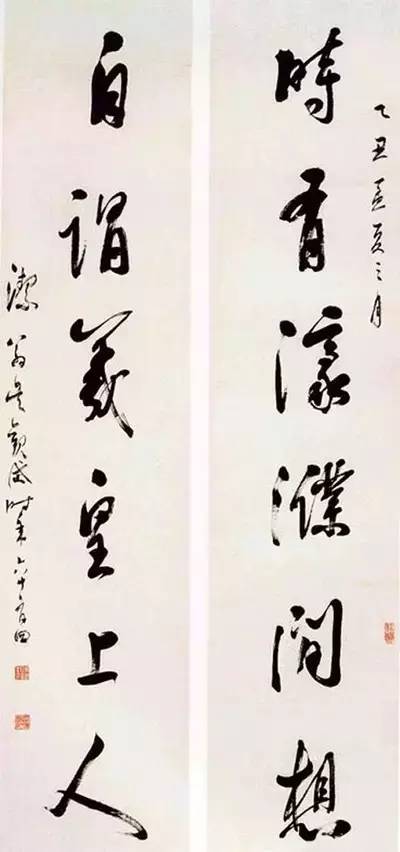 乙丑孟夏之月
時有濠濮間想
自謂羲皇上人
潔翁吳觀岱時年六十有四